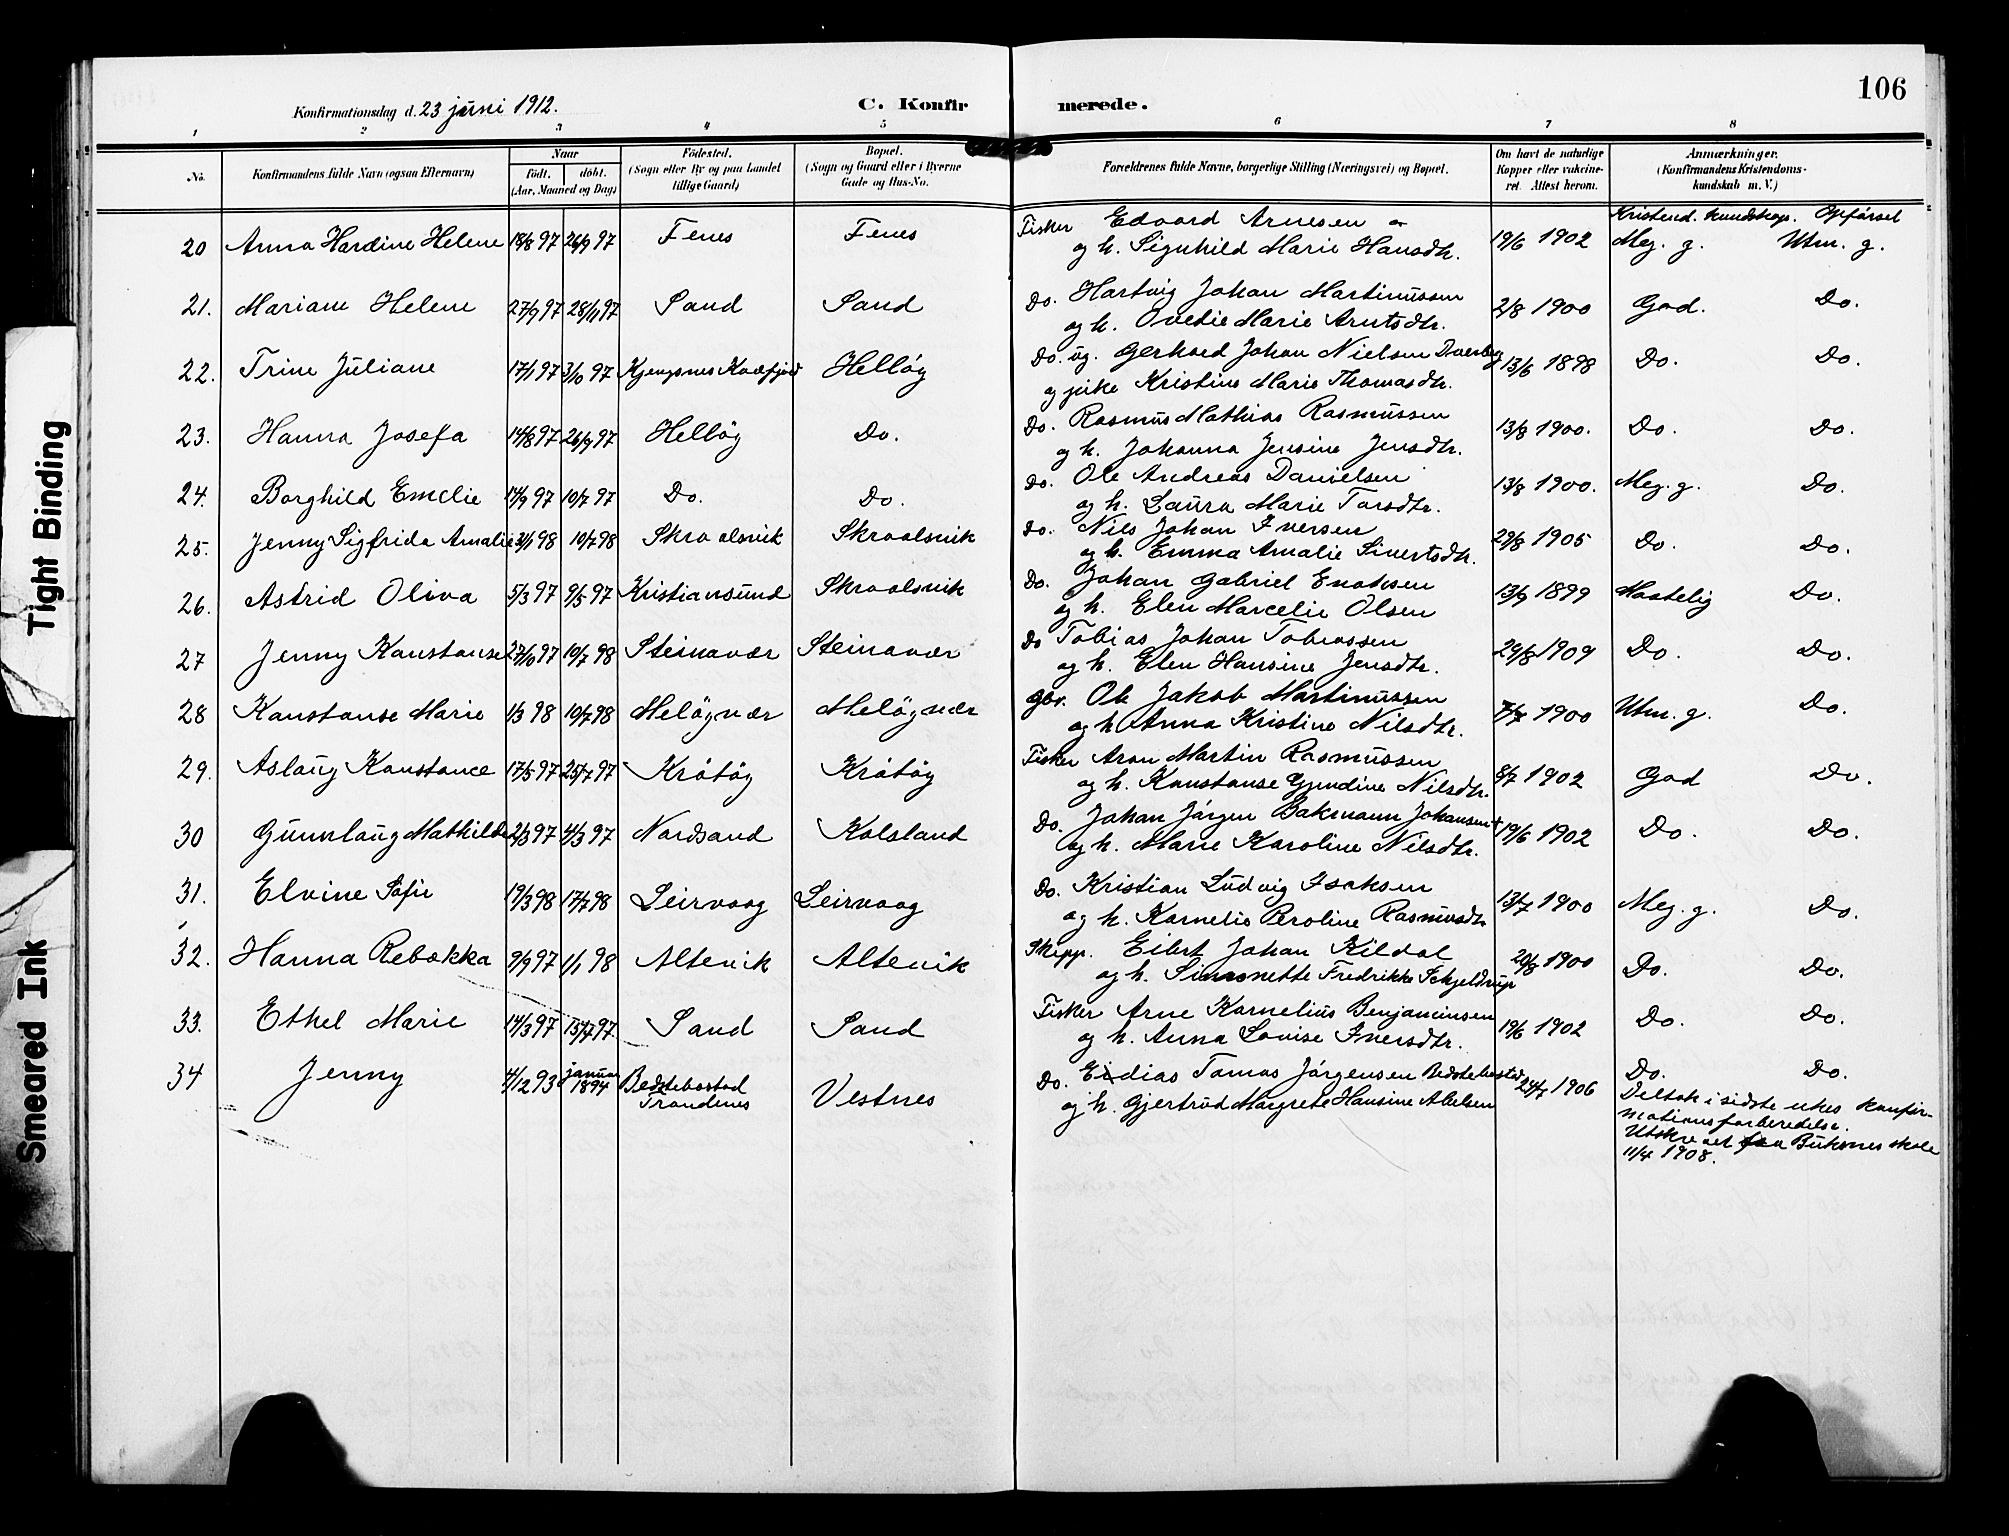 106
Konfirmationsdag d. 23 juni 1912.
C. Konfirmerede.
1 2 3 4 5 6 7 8
No. Konfirmandens fulde Navn (ogsaa Efternavn) Naar født. døbt. (Aar, Maaned og Dag) Fødested. (Sogn eller By og paa Landet tillige Gaard) Bopæl. (Sogn og Gaard eller i Byerne Gade og Hus-No. Forældrenes fulde Navne, borgerlige Stilling (Næringsvei) og Bopæl. Om havt de naturlige Kopper eller vakcineret. Attest herom. Anmærkninger. (Konfirmandens Kristendomskundskab m. V.)
Kristend. kundskap. Opførsel
20 Anna Hardine Helene 18/8 97 26/9 97 Fenes Fenes Fisker Edvard Arnesen
og h. Signhild Marie Hansdtr. 19/6 1902 Meg. g. Utm. g.
21. Mariane Helene 27/9 97 28/11 97 Sand Sand Do. Hartvig Johan Martinussen
og h. Ovedie Marie Arntsdtr. 2/8 1900 God. Do.
22. Trine Juliane 17/1 97 3/10 97 Kjengsnes Kvæfjord Helløy Do. ug. Gerhard Johan Nielsen Dverberg
og pike Kristine Marie Thomasdtr. 13/6 1898 Do. Do.
23. Hanna Josefa 14/8 97 26/9 97 Helløy Do. Do. Rasmus Mathias Rasmussen
og h. Johanna Jensine Jensdtr. 13/8 1900. Do. Do.
24. Borghild Emelie 14/9 97 10/7 97 Do. Do. Do. Ole Andreas Danielsen
og h. Laura Marie Torsdtr. 13/8 1900. Meg. g. Do.
25. Jenny Sigfrida Amalie 31/1 98 10/7 98 Skroolsvik Skroolsvik Do. Nils Johan Iversen
og h. Emma Amalie Sivertsdtr. 29/8 1905 Do. Do.
26. Astrid Oliva 5/3 97 9/5 97 Kristiansund Skroolsvik Do. Johan Gabriel Enoksen
og h. Elen Marcelie Olsen 13/9 1899 Maatelig Do.
27 Jenny Konstanse 27/10 97 10/7 98 Steinavær Steinavær Do Tobias Johan Tobiassen
og h. Elen Hansine Jensdtr. 29/8 1909 Do. Do.
28 Konstanse Marie 1/3 98 10/7 98 Meløyvær Meløyvær gbr. Ole Jakob Martinussen
og h Anna Kristine Nilsdtr. 1900 Utm. g. Do.
29. Aslaug Konstance 17/5 97 25/7 97 Krøtøy Krøtøy Fisker Aron Martin Rasmussen
og h. Konstanse Gjendine Nilsdtr. 8/7 1902 God Do.
30 Gunnlaug Mathilde 2/3 97 4/3 97 Nordsand Kolsland Do. Johan Jørgen Bakmann Johansen
og h. Marie Karoline Nilsdtr. 19/6 1902 Do. Do.
31. Elvine Sofie 19/3 98 17/7 98 Leirvaag Leirvaag Do. Kristian Ludvig Isaksen
og h. Kornelie Peroline Rasmusdtr 13/7 1900 Meg. g. Do.
32. Hanna Rebekka 9/9 97 1/1 98 Altevik Altevik Skipp. Eibert Johan Kildal
og h. Simonette Fredrikke Schjeldrup 20/8 1900 Do. Do.
33. Ethel Marie 14/3 97 15/7 97. Sand Sand Fisker Arne Kornelius Benjaminsen
og h. Anna Lovise Iversdtr. 19/6 1902 Do. Do.
34 Jenny 4/12 93 januar 1894 Bedstebostad Trondenes Vestnes Do. Eidias Tomas Jørgensen Bedstebostad
og h. Gjertrud Margrete Hansine Abelsen 24/7 1906 Do. Do.
Deltok i sidste ukes konfirmationsforberedelse.
Utskrevet fra Buksnes skole
11/4 1908.
Tight Binding
Smeared Ink